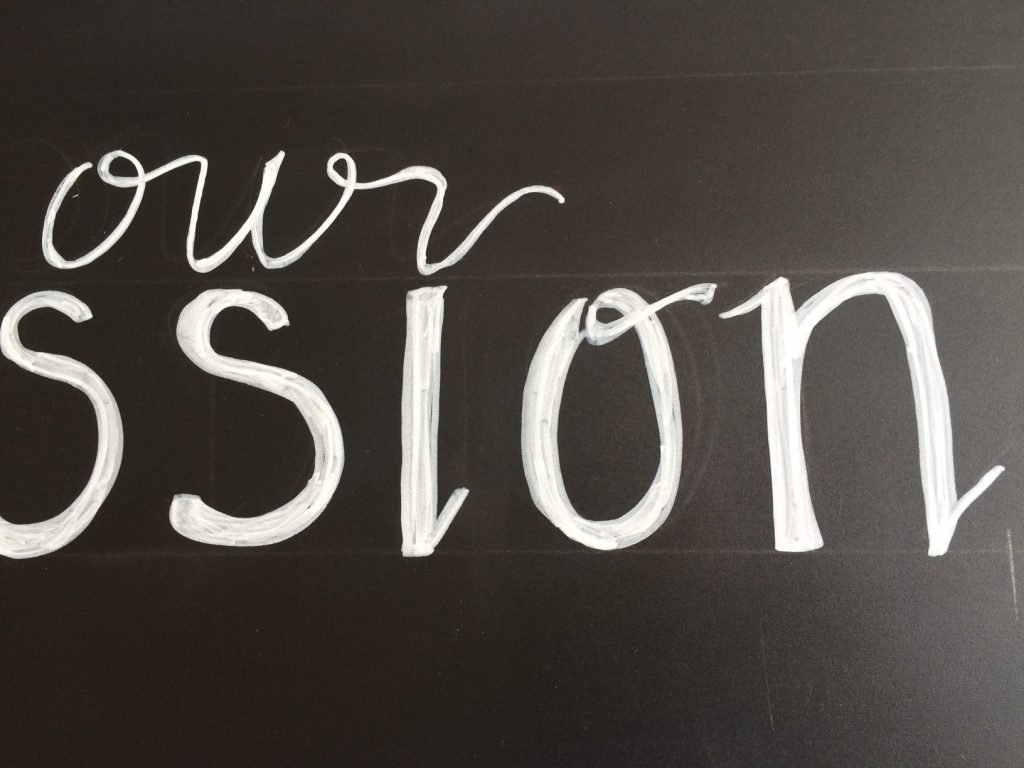 our
ssion